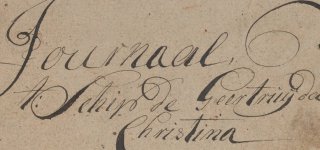 Journaal,
t: Schip de Geertruijda
Christina